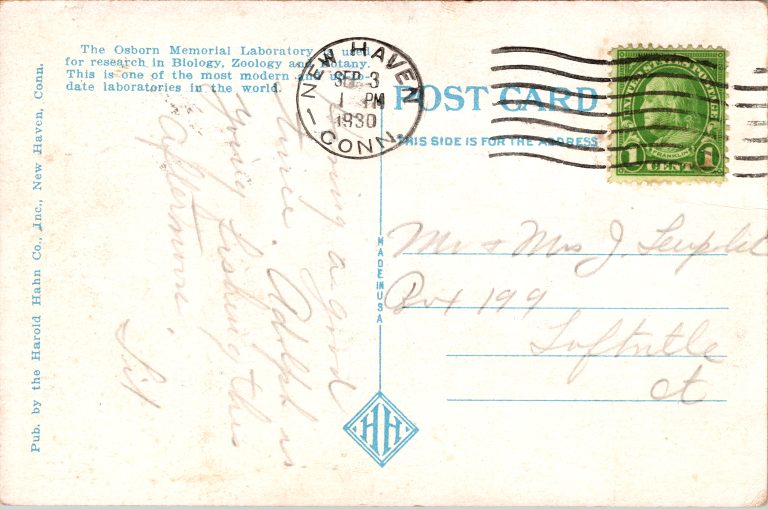 The Osborn Memorial Laboratory is used
for research in Biology, Zoology and Botany.
This is one of the most modern and up-to-
date laboratories in the world.
Pub. by the Harold Hahn Co., Inc., New Haven, Conn.
NEW HAVEN
SEP 3
1 PM
1930
CONN.
POST CARD
THIS SIDE IS FOR THE ADDRESS
UNITED STATES POSTAGE
FRANKLIN
1 CENT 1
MADE IN USA
HH
a good
time. Adolph is
going fishing this
afternoon.
Mr & Mrs J.
Box 199
Ct